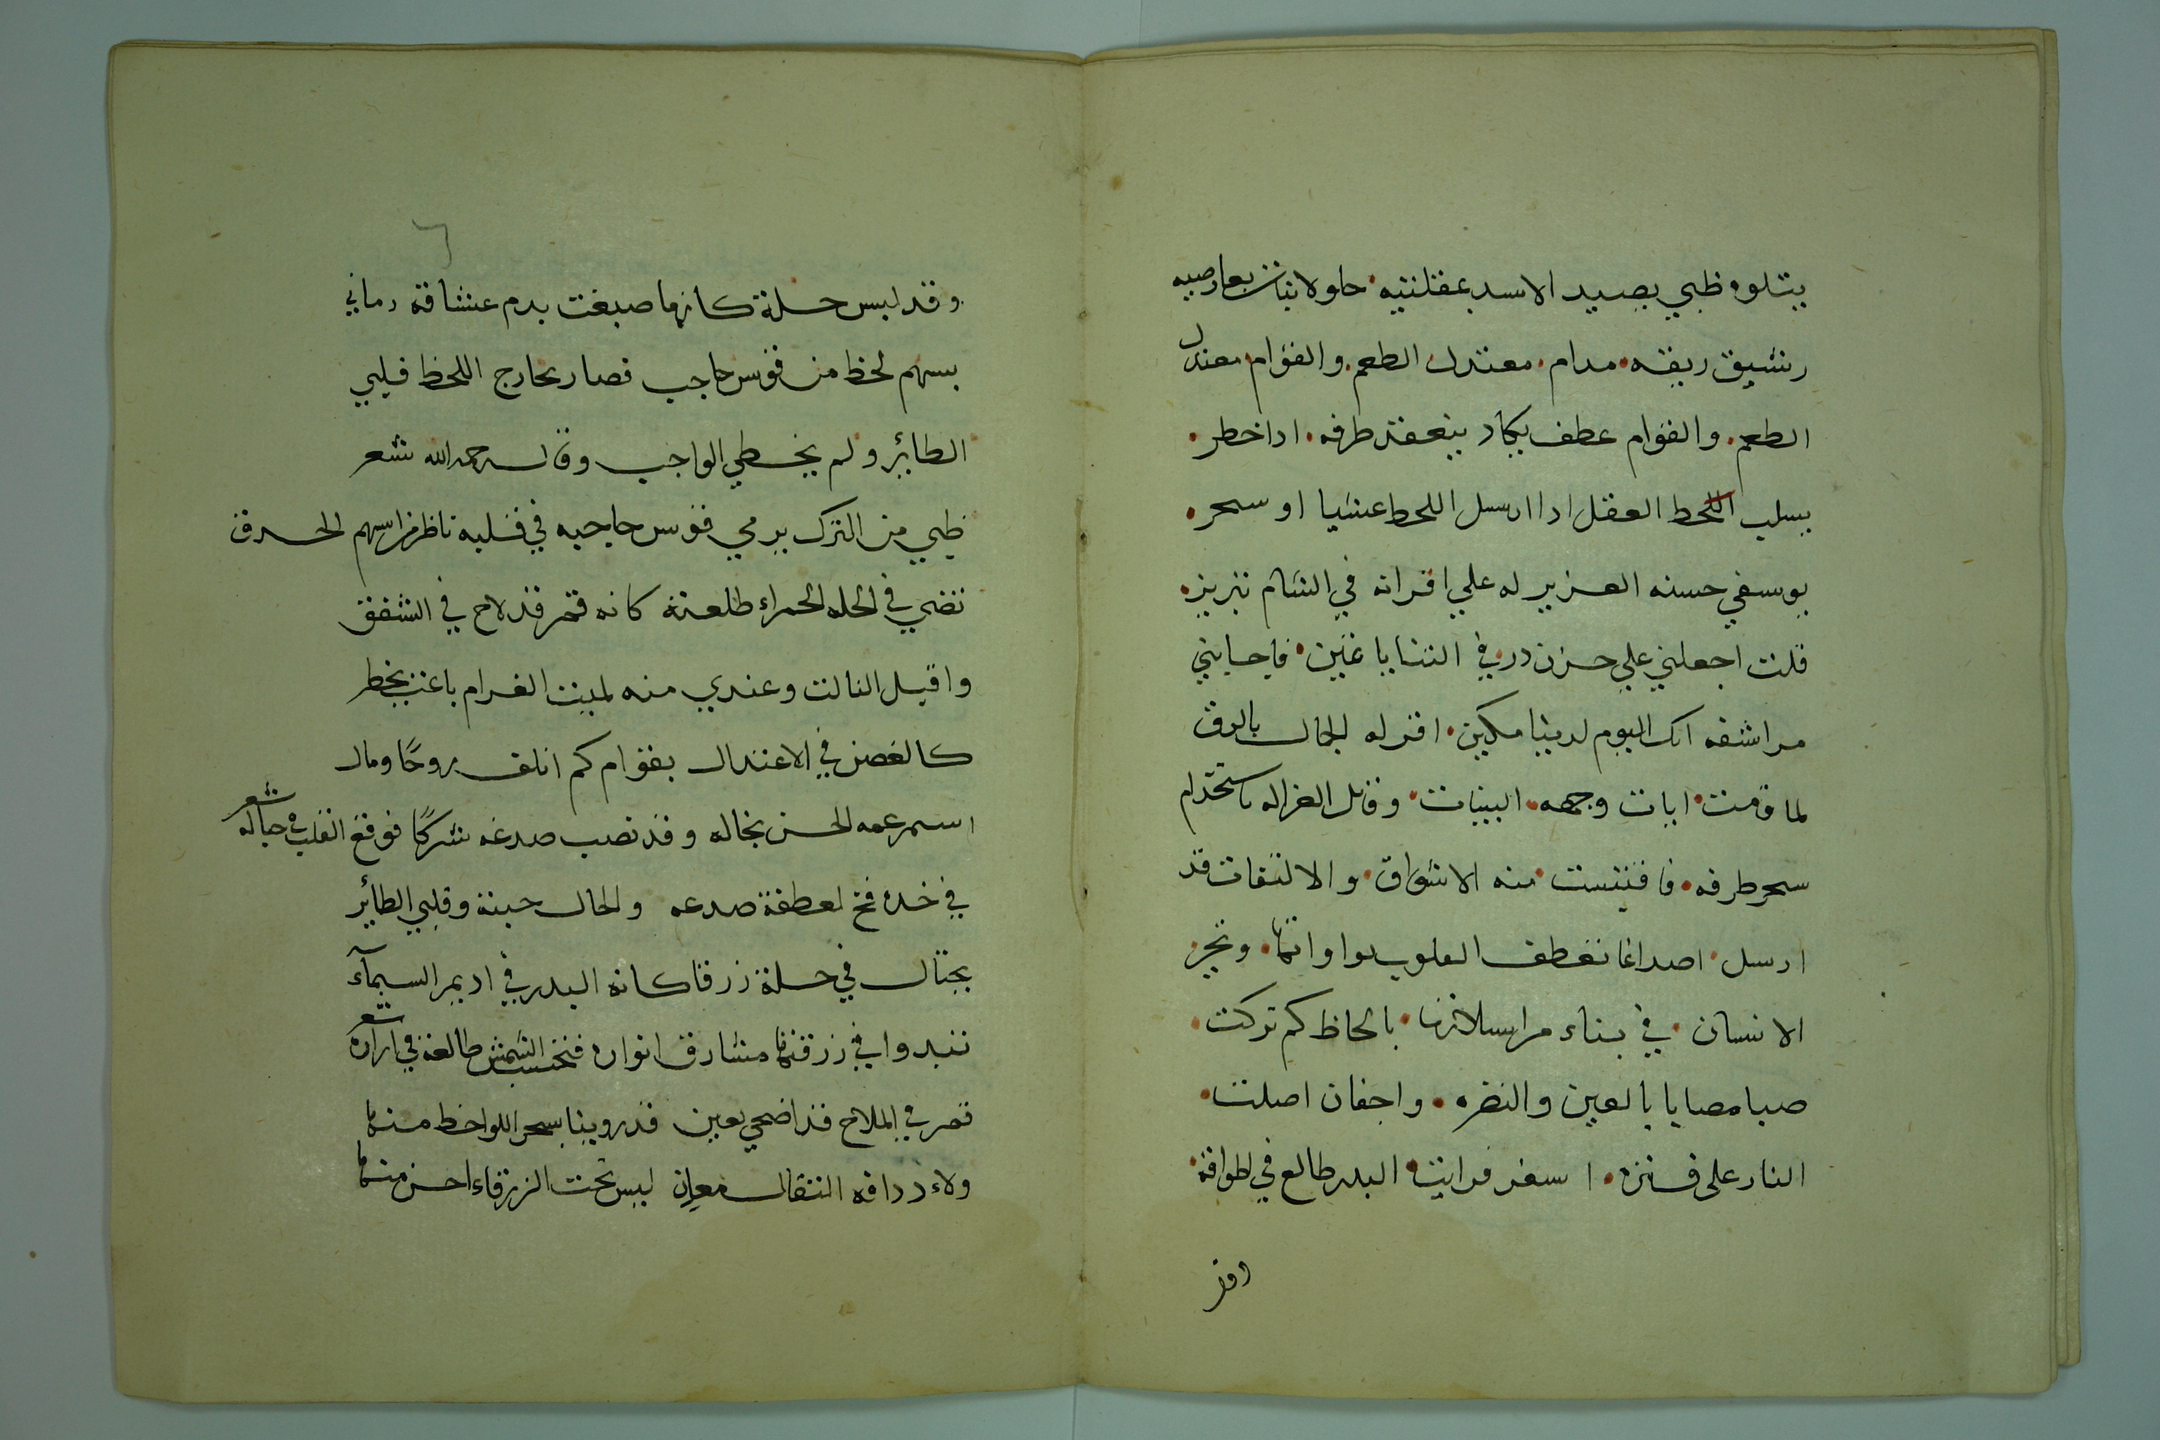 يتلوه ظبي يصيد الاسد بمقلتيه حاولا نبات بعارضيه
رشيق ريقه مدام معتدل الطعم والقوام معتدل
الطعم والقوام عطف يكاد ينعقد طرفه اذا خطر
يسلب اللحظ العقل اذا ارسل اللحظ عشيا او سحر
يوسفي حسنه العزيز له علي اقرانه في الشام تبريز
قلت اجعلني علي حزن در في الثنايا غين فاحابتني
مراشفه انك اليوم لدينا مكين اقر له الجمال بالرق
لما قامت ايات وجهه البينات وقابل الغزاله باستخدام
سحر طرفه فاقتبست منه الاشواق والالتفات قد
ارسل اصداغا تعطف القلوب واواتها وتحير
الانسان في بناء مراسلاتها بالحاظ كم تركت
صبا مصابا بالعين والنضره واجفان اصلت
النار علي فتره اسفر فرايت البدر طالع في اطواقه
وقد
وقد لبس حلة كانها صبغت بدم عشاقه رماني
بسهم لحظ من قوس حاجب فصار بخارج اللحظ قلبي
الطائر ولم يخطي الواجب وقال رحمه الله شعر
ظبي من الترك يرمي قوس حاجبه في قلبه ناظر من اسهم الحدق
تضي في الحله الحمراء طلعته كانه قمر قد لاح في الشفق
واقبل الثالث وعندي منه لمبيت الغرام باعث يخطر
كالغصن في الاعتدال بقوام كم اتلف روحا ومال
اسمر عمه الحسن بخاله وقد نصب صدغه شركا فوقع القلب في حباله شعر
في خده فخ لعطفة صدغه والخال حبته وقلبي الطائر
يختال في حلة زرقا كانه البدر في اديم السمآء
تبدوا في زرقتها مشارق انواره فتحسب الشمش طالعة في ازاره شعر
قمر في الملاح قد اضحي بعين قد روينا بسحر اللواحظ منها
ولاردافه الثقال معان ليس تحت الزرقاء احسن منها